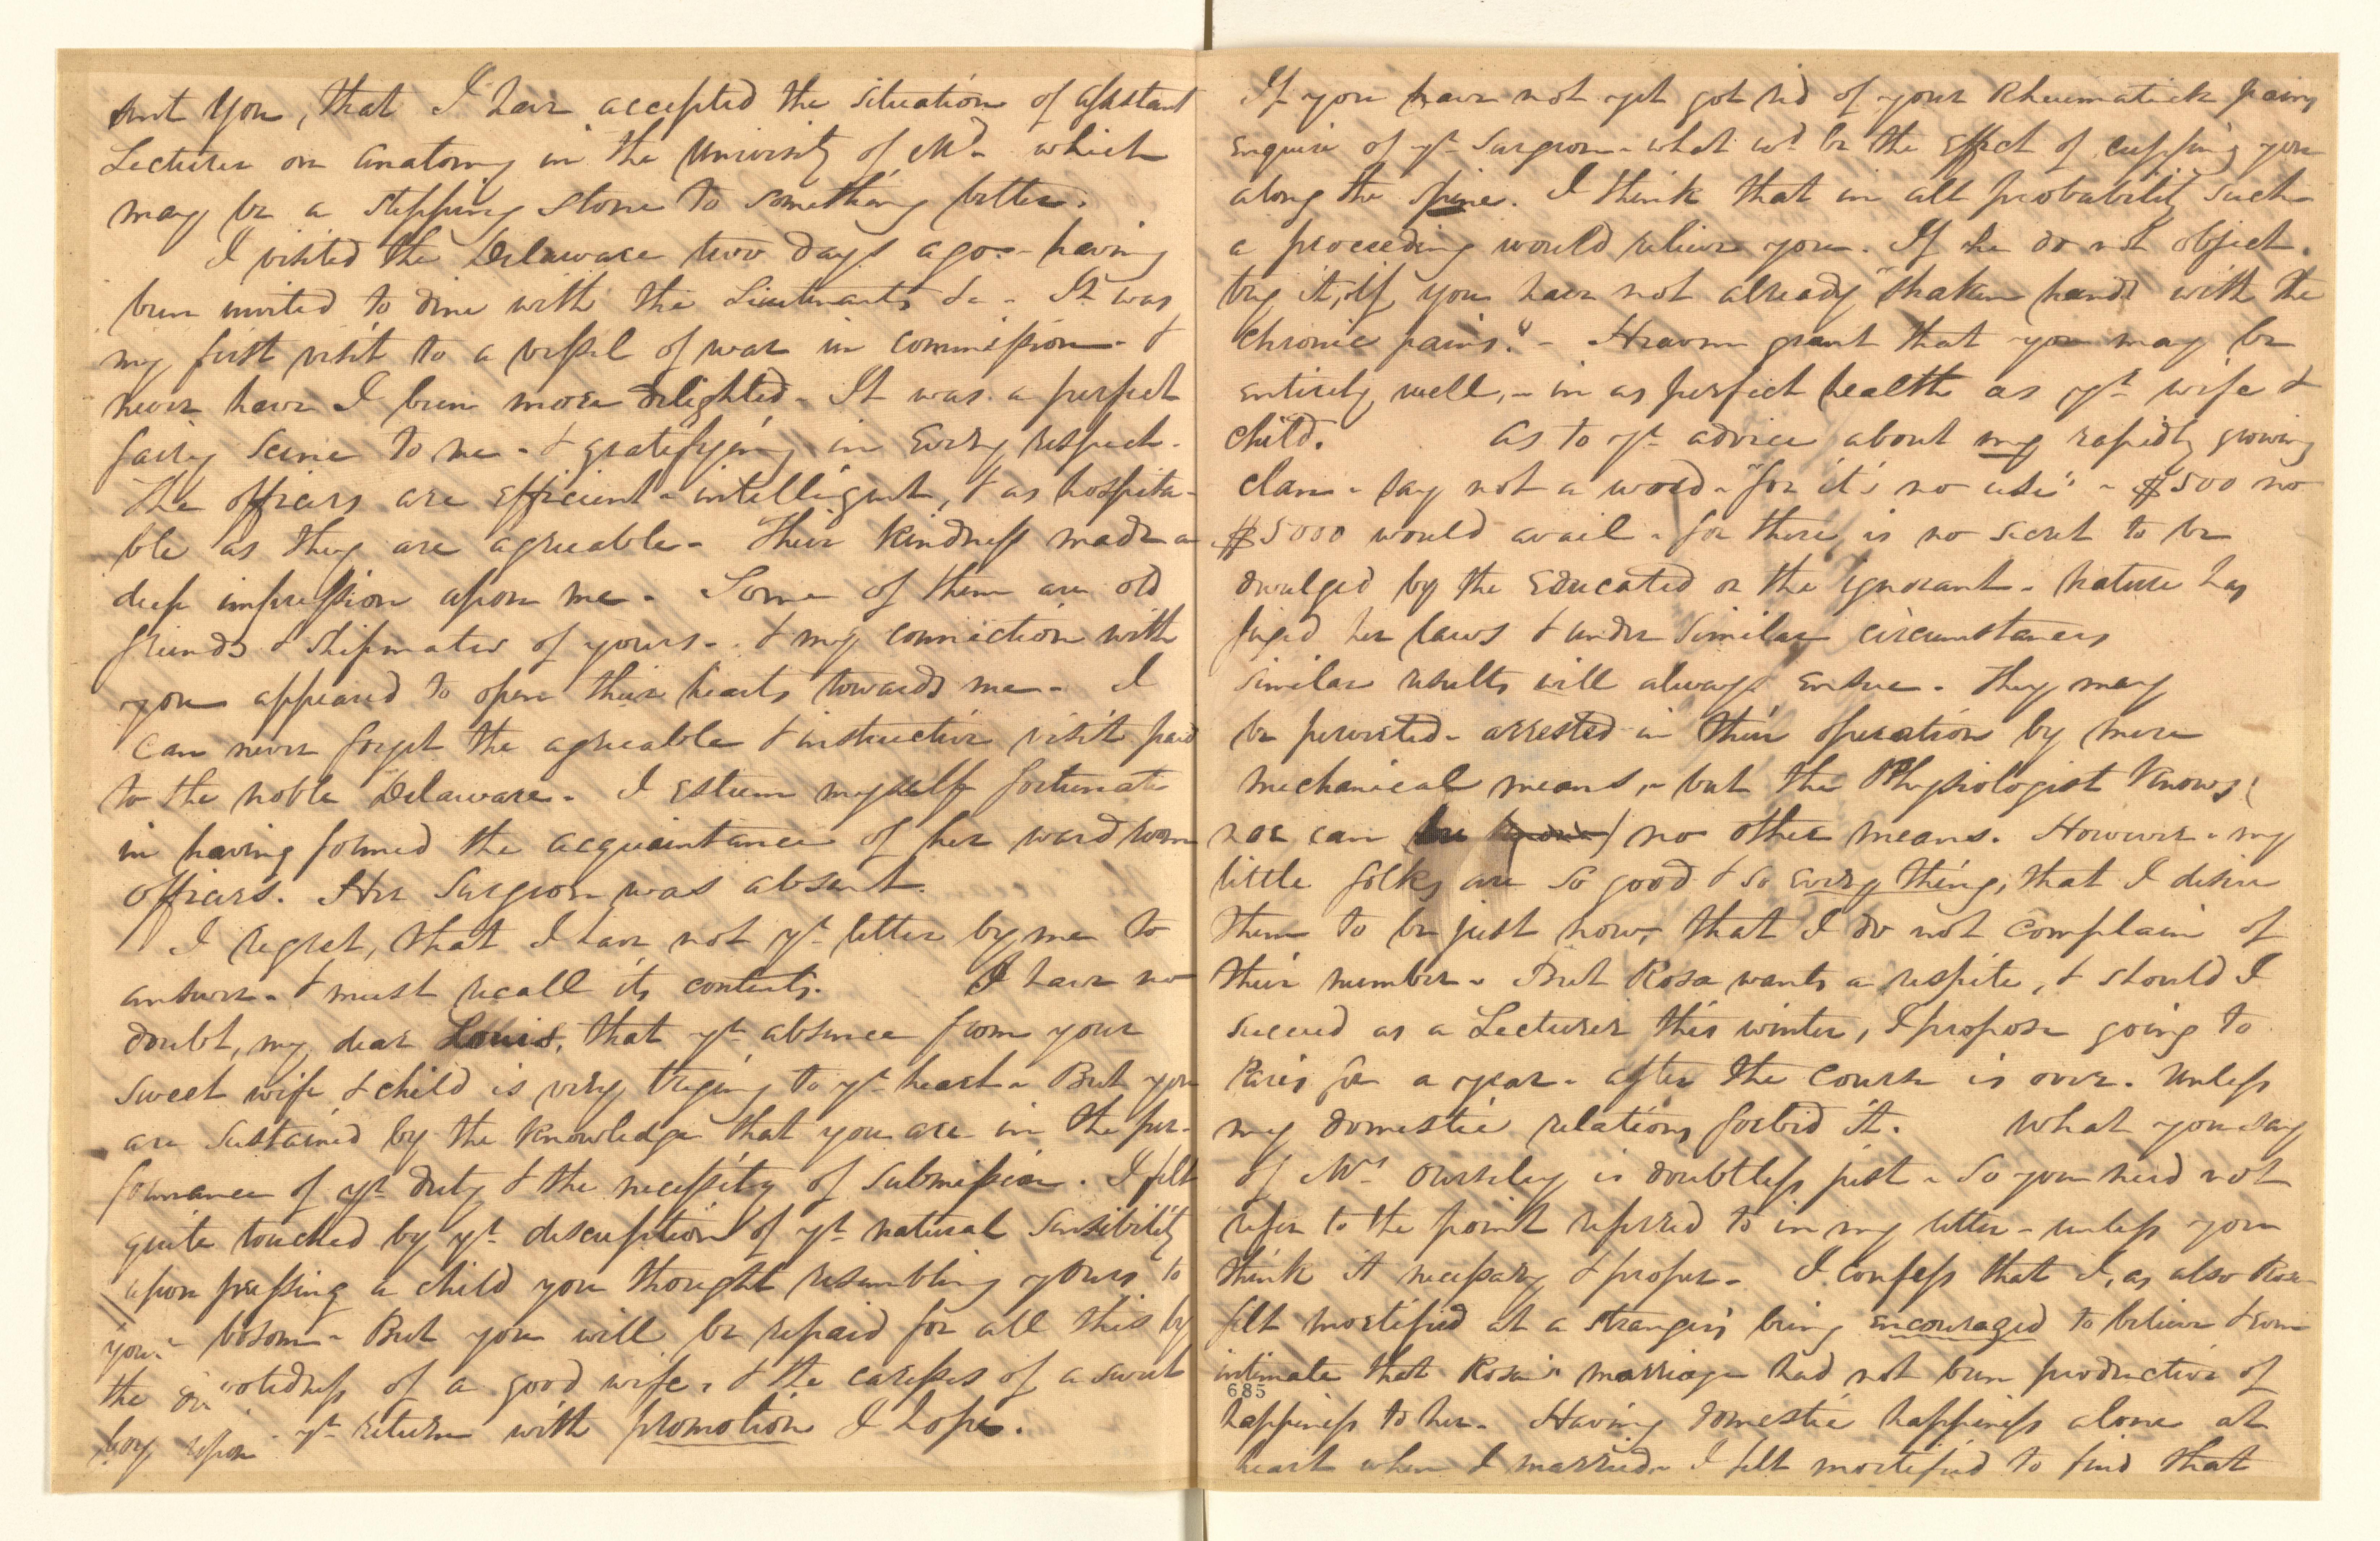 sent you, that I have accepted the situation of assistant
Lecturer on anatomy in the University of Md. which
may be a stepping stone to something better.
I visited the Delaware two days ago - having
been invited to dine with the Lieutenants &c - It was
my first visit to a vessel of war in commission - &
never have I been more delighted - It was a perfect
fairy scene to me - & gratifying in every respect.
The officers are efficient - intelligent, & as hospita-
ble as they are agreeable - Their kindness made a
deep impression upon me - Some of them are old
friends & shipmates of yours - & my connection with
you appeared to open their hearts towards me - I
can never forget the agreeable & instructive visit paid
to the noble Delaware - I esteem myself fortunate
in having formed the acquaintance of her ward room
officers. Her Surgeon was absent.
I regret, that I have not yr. letter by me to
answer - & must recall its contents. I have no
doubt, my dear Louis, that yr. absence from your
sweet wife & child is very trying to yr. heart - But you
are sustained by the knowledge that you are in the per-
formance of yr. duty & the necessity of submission. I felt
quite touched by yr. description of yr. natural sensibility
upon pressing a child you thought resembling yours to
your bosom - But you will be repaid for all this by
the devotedness of a good wife, & the caresses of a sweet
boy upon yr. return with promotion I hope.
If you have not yet got rid of your Rheumatick pains
enquire of yr. Surgeon - what wd. be the effect of cupping you
along the spine. I think that in all probability such
a proceeding would relieve you. If he do not object.
try it, if you have not already "shaken hands with the
chronic pains." - Heaven grant that you may be
entirely well, - in as perfect health as yr. wife &
child. As to yr. advice about my rapidly growing
clan - say not a word - "for it's no use" - $500 no
$5000 would avail - for there is no secret to be
divulged by the educated or the ignorant - Nature has
fixed her laws & under similar circumstances
similar results will always ensue - They may
be perverted - arrested in their operation by mere
mechanical means, - but the Physiologist knows (
nor can be know) no other means. However - my
little folks are so good & so every thing, that I desire
them to be just now, that I do not complain of
their number - But Rosa wants a respite, & should I
succeed as a Lecturer this winter, I propose going to
Paris for a year - after the course is over. Unless
my domestic relations forbid it. What you say
of Mrs. Ousley is doubtless just - So you need not
refer to the point referred to in my letter - unless you
think it necessary & proper - I confess that I, as also Rosa
felt mortified at a stranger's being encouraged to believe &
intimate that Rosa's marriage had not been productive of
685
happiness to her - Having domestic happiness alone at
heart when I married - I felt mortified to find that